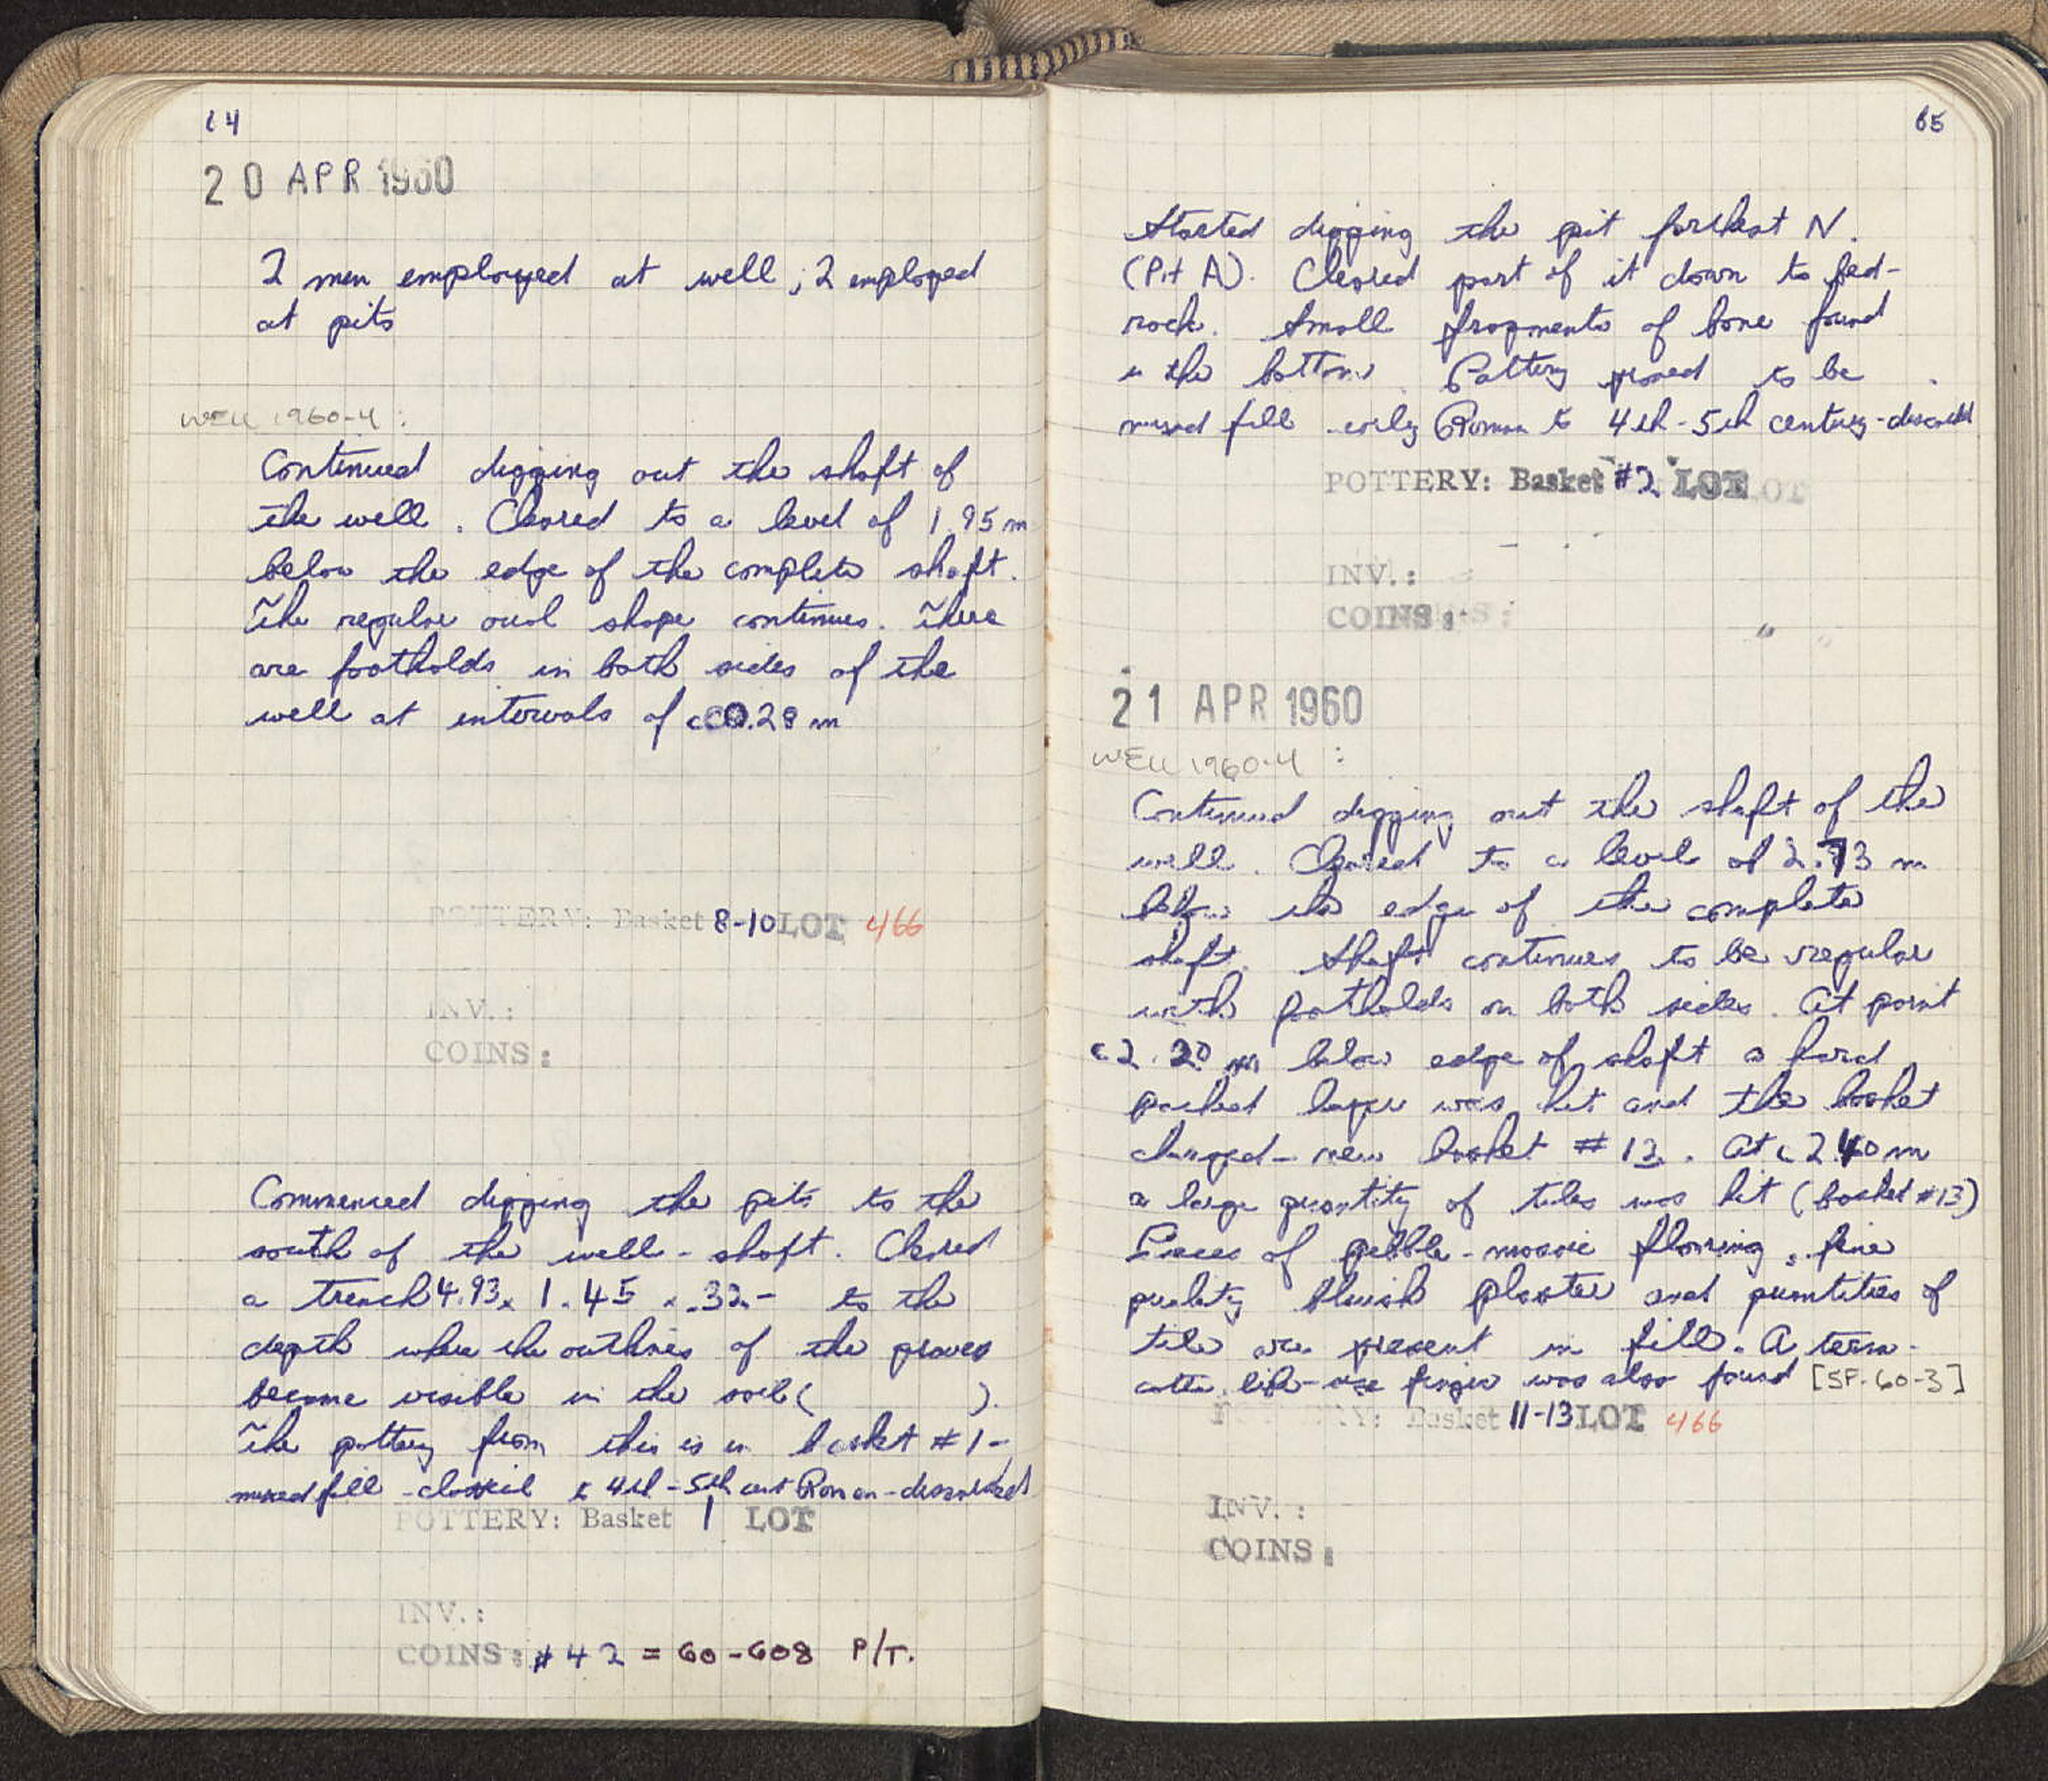 64
20 APR 1960
2 men employed at well; 2 employed
at pits
WELL 1960-4:
Continued digging out the shaft of
the well. Cleared to a level of 1.95 m
below the edge of the complete shaft.
The regular oval shape continues. There
are footholds in both sides of the
well at intervals of c 0.28 m
POTTERY: Basket 8-10 LOT 466
INV.:
COINS:
Commenced digging the pits to the
south of the well-shaft. Cleared
a trench 4.93 x 1.45 x .32 - to the
depth where the outlines of the graves
became visible in the soil ( ).
The pottery from this is in basket #1 -
mixed fill - classical to 4th-5th cent Roman - discarded
POTTERY: Basket 1 LOT
INV.:
COINS: #42 = 60-608 P/T.
65
Started digging the pit farthest N.
(Pit A). Cleared part of it down to bed-
rock. Small fragments of bone found
in the bottom. Pottery proved to be
mixed fill early Roman to 4th-5th century - discarded
POTTERY: Basket #2 LOT
INV.:
COINS:
21 APR 1960
WELL 1960-4:
Continued digging out the shaft of the
well. Cleared to a level of 2.73 m
below the edge of the complete
shaft. Shaft continues to be regular
with footholds on both sides. At point
c 2.20 m below edge of shaft a hard
packed layer was hit and the basket
changed - new basket #12. At c 2.40 m
a large quantity of tiles was hit (basket #13)
Pieces of pebble-mosaic flooring, fine
quality bluish plaster and quantities of
tile are present in fill. A terra-
cotta life-size finger was also found [SF-60-3]
POTTERY: Basket 11-13 LOT 466
INV.:
COINS: